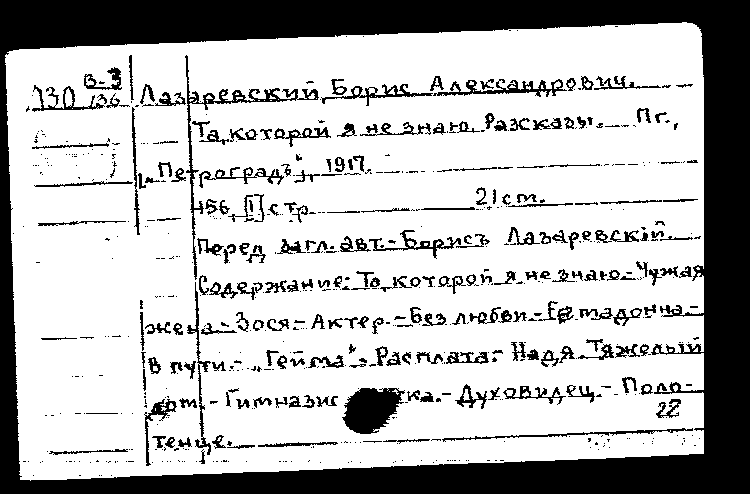 130 В-3/136 Лазаревский, Борис Александрович.
Та, которой я не знаю. Разсказы. Пг.,
["Петроградъ"], 1917.
156, [1] стр. 21 cm.
Перед загл. авт.- Борисъ Лазаревскій.
Содержание: Та, которой я не знаю.- Чужая
жена.- Зося.- Актер.- Без любви.- Её мадонна.-
В пути.- "Гейма".- Расплата.- Надя. Тяжелый
Духовидец.- Поло-
тенце. 22